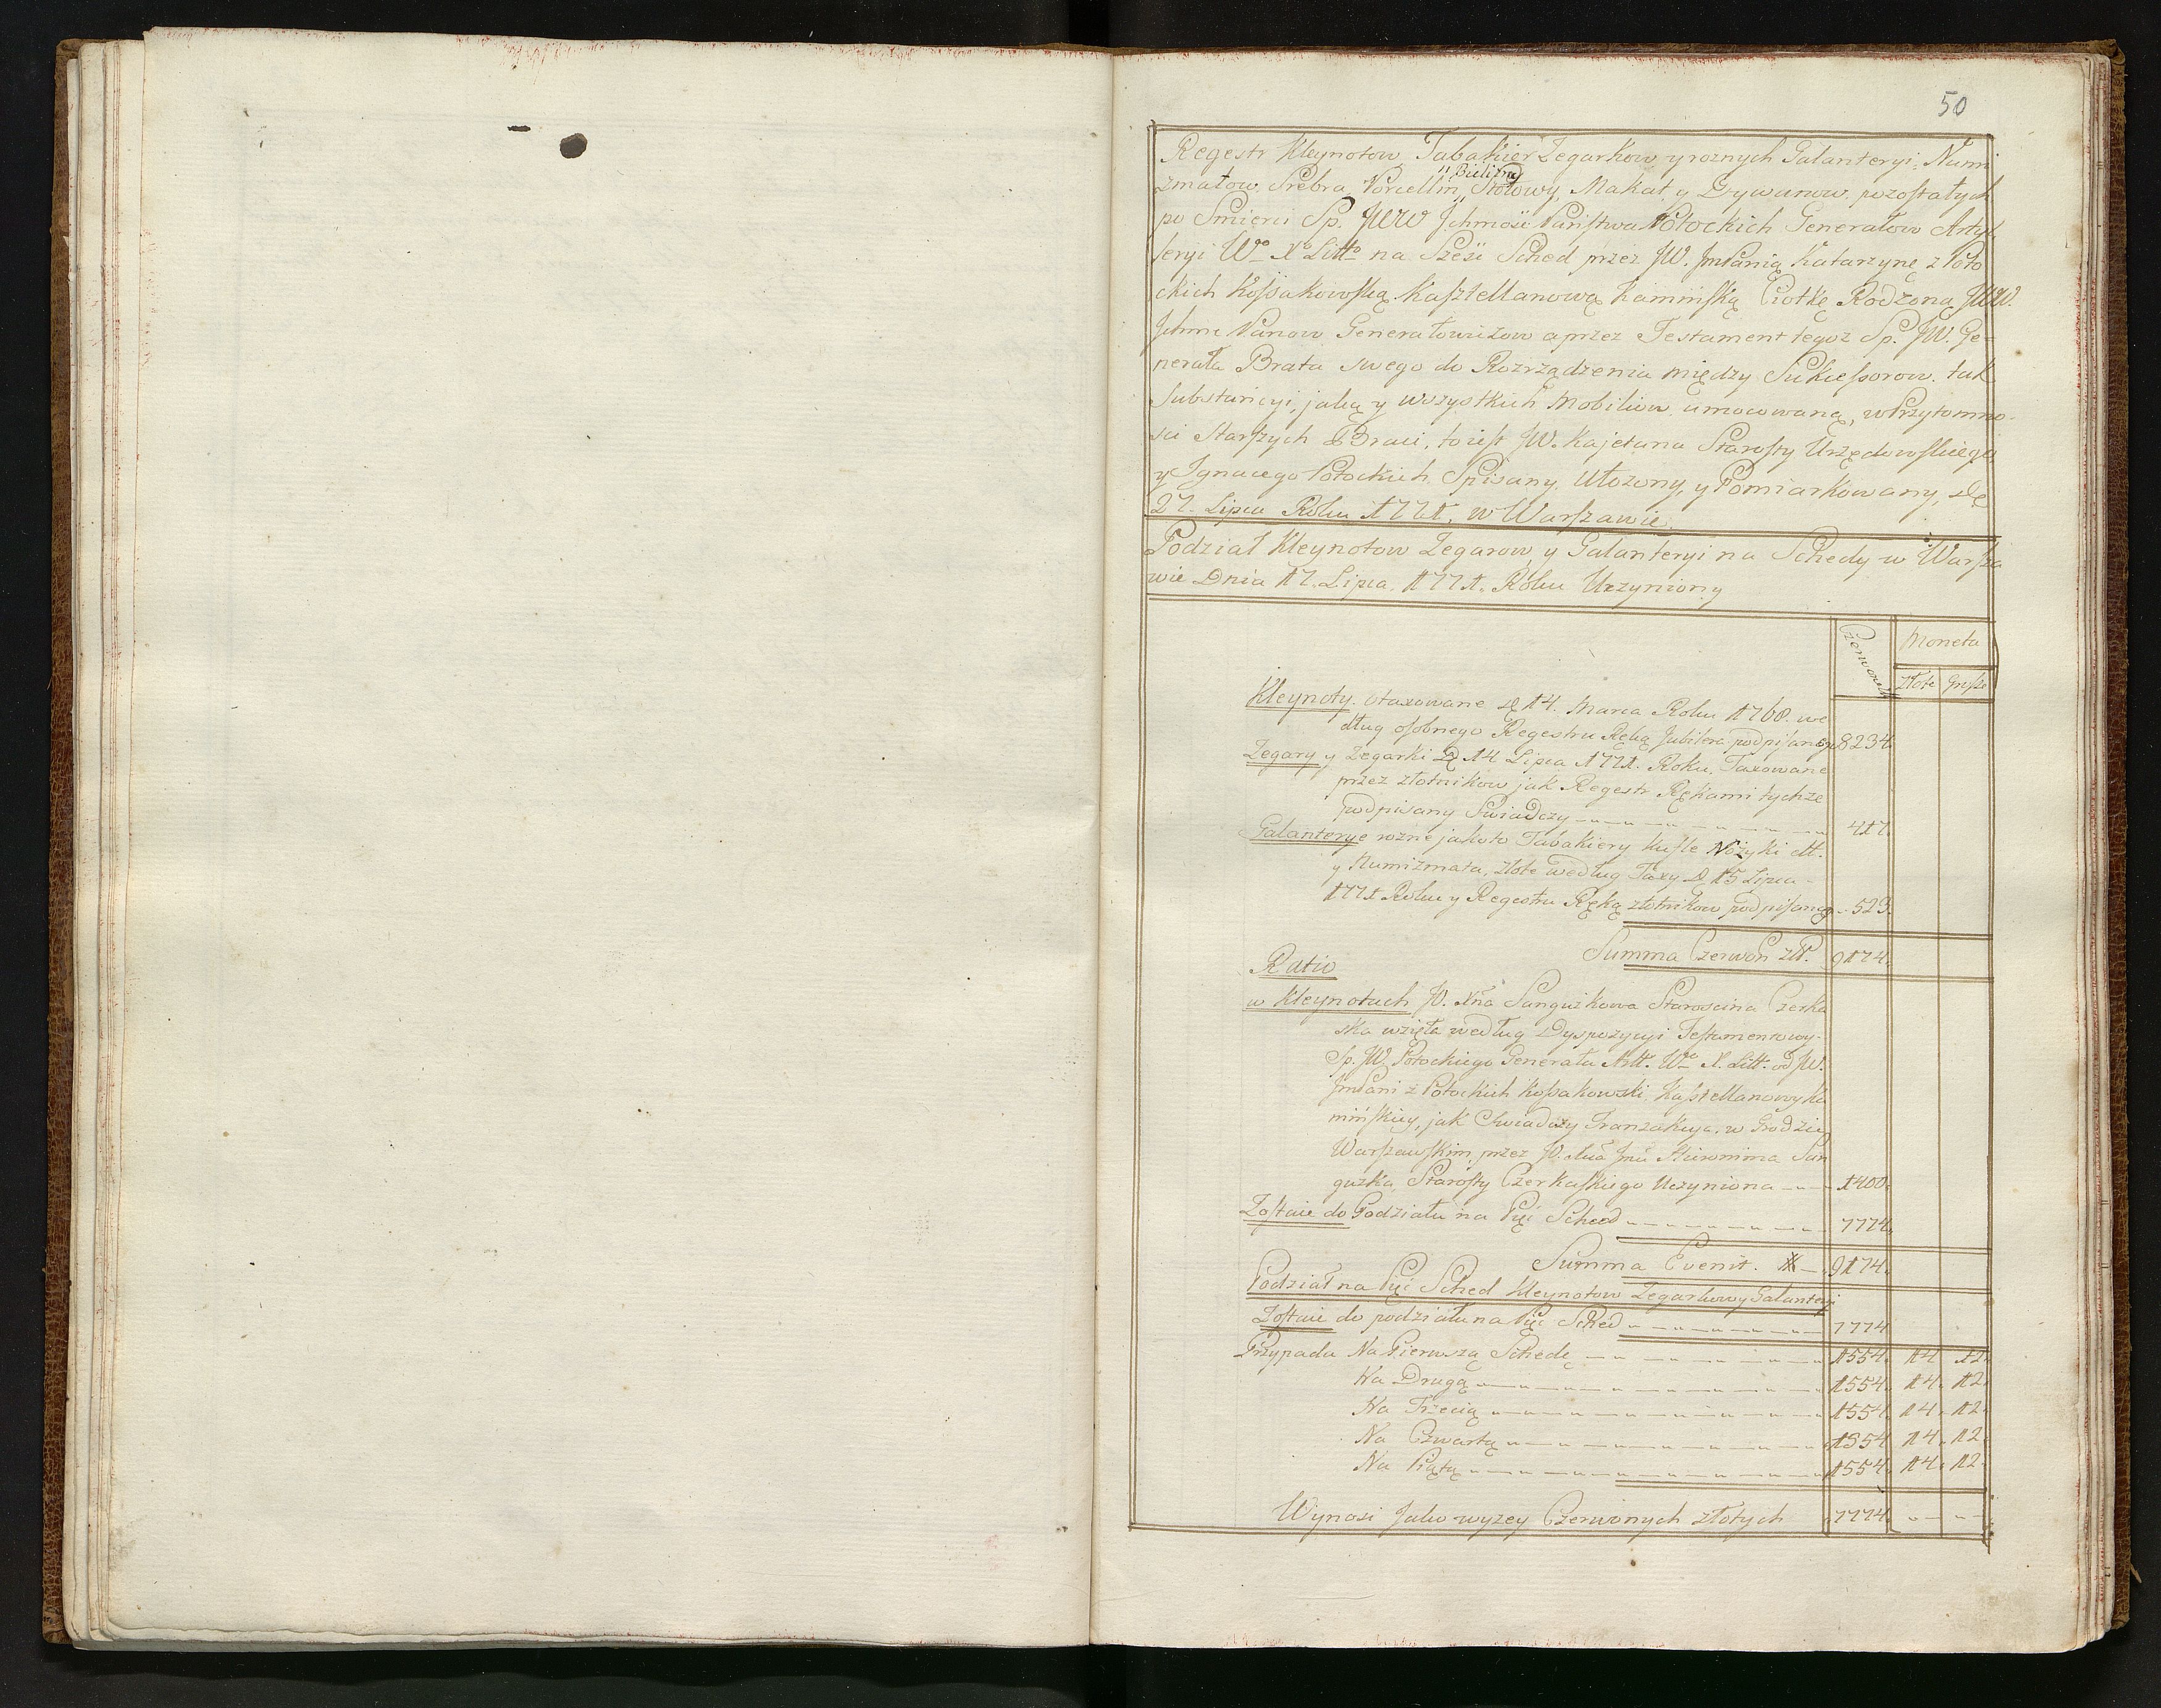 50
Regestr Kleynotow, Tabakier Zegarkow, y roznych Galanteryi: Numi
zmatow, Srebra, Porcellin, "Bielizny Stołowy, Makat, y Dywanow, pozostałych
po Smierci Sp. JWW Jchmość Państwa Potockich Generałow Artyl
leryi Wo Xo Litto na Sześć Sched przez JW. JmPanią Katarzynę z Poto
ckich Kossakowską Kasztellanową Kamińską Ciotkę Rodzoną JWW.
Jchmć Panow Generałowiczow a przez Testament tegoż Sp. JW. Ge=
nerała Brata swego do Rozrządzenia między Sukcessorow, tak
Substancyi, jako y wszystkich Mobiliow umocowaną, w Przytomno-
ści Starszych Braci, to iest JW. Kajetana Starosty Urzędowskiego,
y Ignacego Potockich Spisany, Ułożony, y Pomiarkowany, De
27. Lipca Roku 1771. w Warszawie.
Podział Kleynotow Zegarow y Galanteryi na Schedy w Warsza
wie Dnia 17. Lipca. 1771. Roku Uczyniony
Czerwone Moneta
Złote Grosze
Kleynoty. otaxowane D 14. Marca Roku 1768. we
dług osobnego Regestru Ręką Jubilera podpisanego 8234.
Zegary y Zegarki D 14 Lipca 1771. Roku, Taxowane
przez złotnikow jak Regestr Rękami tychże
podpisany Świadczy 417.
Galanterye rozne jako to Tabakiery Kufle Nożyki ett.
y Numizmata, złote według Taxy D 15 Lipca -
1771 Roku y Regestru Ręką złotnikow podpisanego - 523.
Summa Czerwon złł. 9174.
Ratio
w Kleynotach JO. Xna Sanguszkowa Starościna Czerka
ska wzięła według Dyspozycyi Testamentowy-
Sp. JW. Potockiego Generała Artt. Wo X. Litt. od JW.
JmPani z Potockich Kossakowski Kasztellanowy Ka
mińskiey, jak Świadczy Tranzakcya w Grodzie
Warszawskim, przez JO. Xcia Jmci Hieronima San
guszka, Starosty Czerkaskiego Uczyniona 1400.
Zostaie do Podziału na Pięć Sched 7774.
Summa Evenit. # 9174.
Podział na Pięć Sched Kleynotow Zegarkow y Galanteryi
Zostaie do podziału na Pięć Sched 7774
Przypada Na Pierwszą Schedę 1554. 14 12.
Na Drugą 1554. 14. 12.
Na Trzecią 1554. 14. 12.
Na Czwartą 1554 14. 12.
Na Piątą 1554. 14. 12.
Wynosi Jako wyzey Czerwonych złotych 7774.